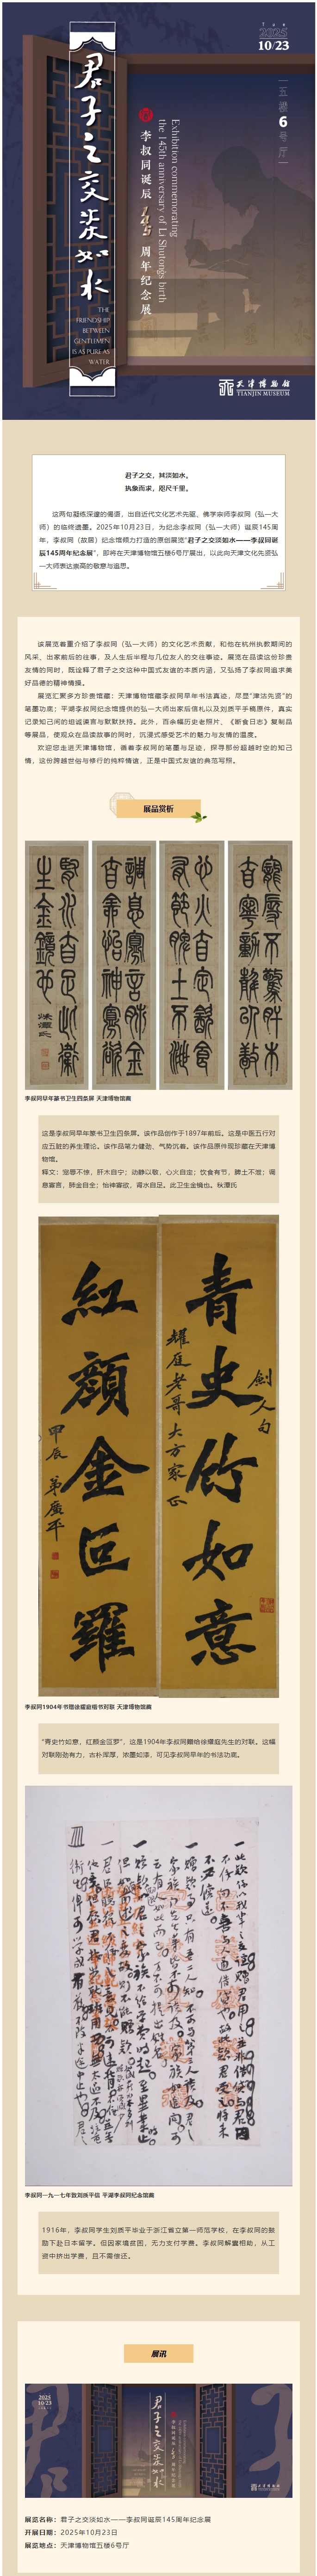 Tue
2025
10/23
五楼
6
号厅
君子之交淡如水
李叔同诞辰145周年纪念展
Exhibition commemorating
the 145th anniversary of Li Shutong's birth
THE
FRIENDSHIP
BETWEEN
GENTLEMEN
IS AS PURE AS
WATER
天津博物館
TIANJIN MUSEUM
君子之交，其淡如水。
执象而求，咫尺千里。
这两句凝练深邃的偈语，出自近代文化艺术先驱、佛学宗师李叔同（弘一大
师）的临终遗墨。2025年10月23日，为纪念李叔同（弘一大师）诞辰145周
年，李叔同（故居）纪念馆倾力打造的原创展览“君子之交淡如水——李叔同诞
辰145周年纪念展”，即将在天津博物馆五楼6号厅展出，以此向天津文化先贤弘
一大师表达崇高的敬意与追思。
该展览着重介绍了李叔同（弘一大师）的文化艺术贡献，和他在杭州执教期间的
风采、出家前后的往事，及人生后半程与几位友人的交往事迹。展览在品读这份珍贵
友情的同时，既诠释了君子之交这种中国式友谊的本质内涵，又弘扬了李叔同追求美
好品德的精神情操。
展览汇聚多方珍贵馆藏：天津博物馆藏李叔同早年书法真迹，尽显“津沽先贤”的
笔墨功底；平湖李叔同纪念馆提供的弘一大师出家后信札以及刘质平手稿原件，真实
记录知己间的坦诚谏言与默默扶持。此外，百余幅历史老照片、《断食日志》复制品
等展品，使观众在品读故事的同时，沉浸式感受艺术的魅力与友情的温度。
欢迎您走进天津博物馆，循着李叔同的笔墨与足迹，探寻那份超越时空的知己
情，这份跨越世俗与修行的纯粹情谊，正是中国式友谊的典范写照。
展品赏析
寵辱不驚肝木自寧動靜以敬
心火自定飲食有節脾土不泄
調息寡言肺金自全怡神寡欲
腎水自足此衛生金鏡也
李叔同早年篆书卫生四条屏 天津博物馆藏
这是李叔同早年篆书卫生四条屏。该作品创作于1897年前后。这是中医五行对
应五脏的养生理论。该作品笔力健劲、气势沉着。该作品原件现珍藏在天津博
物馆。
释文：宠辱不惊，肝木自宁；动静以敬，心火自定；饮食有节，脾土不泄；调
息寡言，肺金自全；怡神寡欲，肾水自足。此卫生金镜也。秋潭氏
青史竹如意
劍人句
耀庭老哥大方家正
紅顏金叵羅
甲辰
弟廣平
李叔同1904年书赠徐耀庭楷书对联 天津博物馆藏
“青史竹如意，红颜金叵罗”，这是1904年李叔同赠给徐耀庭先生的对联。这幅
对联刚劲有力，古朴浑厚，浓墨如漆，可见李叔同早年的书法功底。
李叔同一九一七年致刘质平信 平湖李叔同纪念馆藏
1916年，李叔同学生刘质平毕业于浙江省立第一师范学校，在李叔同的鼓
励下赴日本留学。但因家境贫困，无力支付学费。李叔同解囊相助，从工
资中挤出学费，且不需偿还。
展讯
2025
10/23
君子之交淡如水
天津博物館
展览名称：君子之交淡如水——李叔同诞辰145周年纪念展
开展日期：2025年10月23日
展览地点：天津博物馆五楼6号厅